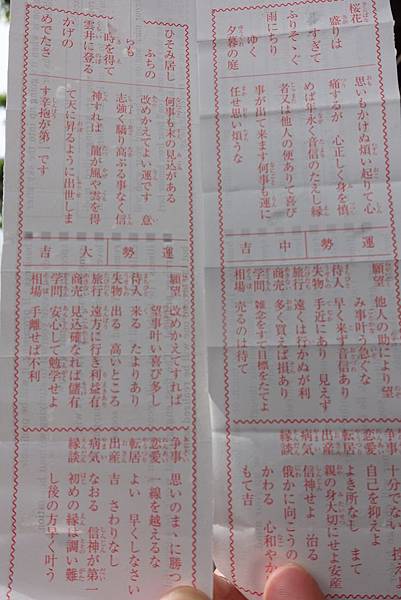 桜花
盛りは
すぎて
ふりそゝぐ
雨にちり
ゆく
夕暮の庭
思いもかけぬ煩い起りて心
痛するが 心正しく身を慎
めば 末永く音信のたえし縁
者又は他人の便ありて喜び
事が出て来ます何事も運に
任せ思い煩うな
運勢 中吉
願望 他人の助により望
み事叶う急ぐな
待人 早く来ず音信あり
失物 手近にあり 見えず
旅行 遠くは行かぬが利
商売 多く買えば損あり
学問 雑念をすて目標をたてよ
相場 売るのは待て
争事 十分でない 控えよ
恋愛 自己を抑えよ
転居 よき所なし まて
出産 親の身大切にせよ安産
病気 信神せよ 治る
縁談 俄かに向こうの
かわる 心和やか
もて吉
ひそみ居し
ふちの
も
時を得て
雲井に登る
かげの
めでたさ
何事も末の見込がある
改めかえてよい運です 意
志強く驕り高ぶる事なく信
神すれば 龍が風や雲を得
て天に昇るように出世しま
す辛抱が第一です
運勢 大吉
願望 改めかえてすれば
望事叶い喜び多し
待人 来る たよりあり
失物 出る 高いところ
旅行 遠方に行き利益有
商売 見込確なれば儲有
学問 安心して勉学せよ
相場 手離せば不利
争事 思いのまゝに勝つ
恋愛 一線を越えるな
転居 よい 早くしなさい
出産 吉 さわりなし
病気 なおる 信神が第一
縁談 初めの縁は調い難
し後の方早く叶う